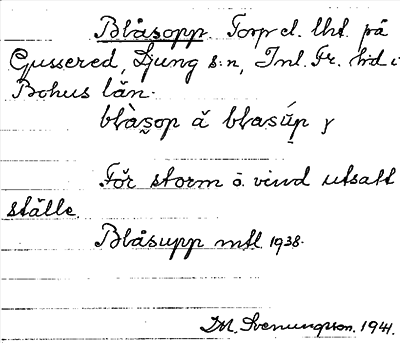 Blåsopp Torp el. lht. på
Gussered, Ljung s:n, Inl. Fr. hd i
Bohus län.
blàsop å blasúp
För storm o. vind utsatt
ställe.
Blåsupp mtl 1938.
M. Svenungsson. 1941.